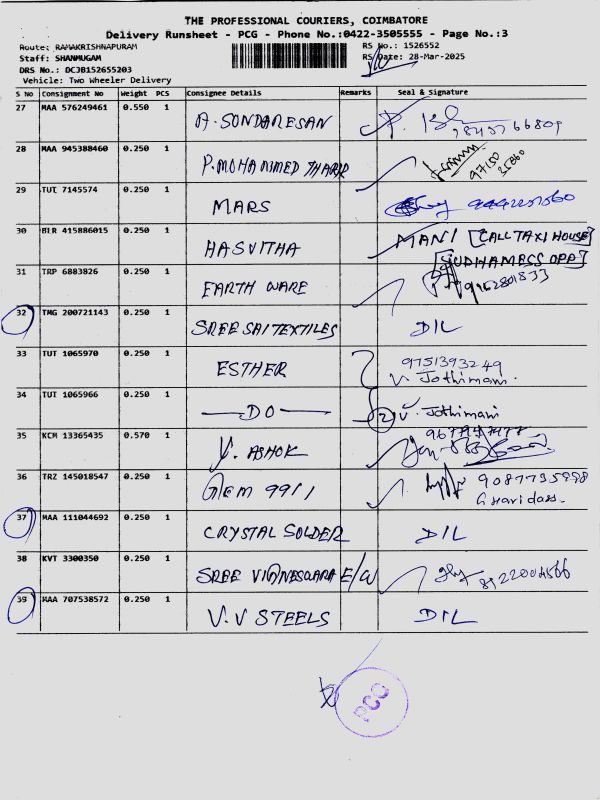 THE PROFESSIONAL COURIERS, COIMBATORE
Delivery Runsheet - PCG - Phone No.:0422-3505555 - Page No.:3
Route: RAMAKRISHNAPURAM
RS No.: 1526552
Staff: SHANMUGAM
RS Date: 28-Mar-2025
DRS No.: DCJB152655203
Vehicle: Two Wheeler Delivery
S No Consignment No Weight PCS Consignee Details Remarks Seal & Signature
27 MAA 576249461 0.550 1 A. SONDARESAN
28 MAA 945388460 0.250 1 P. MOHAMMED THARIR 97150
29 TUT 7145574 0.250 1 MARS
30 BLR 415886015 0.250 1 HASVITHA MANI [CALL TAXI HOUSE]
31 TRP 6883826 0.250 1 EARTH WARE 9962801833
32 TMG 200721143 0.250 1 SREE SAI TEXTILES D/L
33 TUT 1065970 0.250 1 ESTHER 9751393249
V. Jothimani.
34 TUT 1065966 0.250 1 —DO— 2 V. Jothimani
35 KCM 13365435 0.570 1 V. ASHOK
36 TRZ 145018547 0.250 1 GEM 9911 9087735998
G Haridass.
37 MAA 111044692 0.250 1 CRYSTAL SOLDER D/L
38 KVT 3300350 0.250 1 SREE VIGNESWARA E/W
39 MAA 707538572 0.250 1 V.V STEELS D/L
PCG